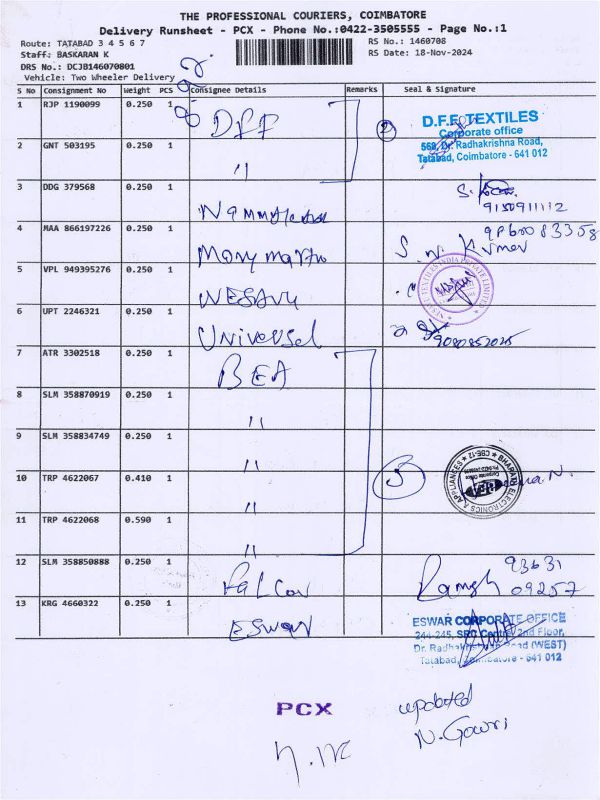 THE PROFESSIONAL COURIERS, COIMBATORE
Delivery Runsheet - PCX - Phone No.:0422-3505555 - Page No.:1
Route: TATABAD 3 4 5 6 7
RS No.: 1460708
Staff: BASKARAN K
RS Date: 18-Nov-2024
DRS No.: DCJB146070801
Vehicle: Two Wheeler Delivery
S No Consignment No Weight PCS Consignee Details Remarks Seal & Signature
1 RJP 1190099 0.250 1 DFF
D.F.F. TEXTILES
Corporate office
568, Dr. Radhakrishna Road,
Tatabad, Coimbatore - 641 012
2 GNT 503195 0.250 1 "
3 DDG 379568 0.250 1
9150911112
4 MAA 866197226 0.250 1
S. N. Kumar
5 VPL 949395276 0.250 1 NESAVU
6 UPT 2246321 0.250 1 Universel
9080852025
7 ATR 3302518 0.250 1 BEA
8 SLM 358870919 0.250 1 "
9 SLM 358834749 0.250 1 "
10 TRP 4622067 0.410 1 "
BHARATH ELECTRONICS & APPLIANCES
CBE-12
11 TRP 4622068 0.590 1 "
12 SLM 358850888 0.250 1 Falcon
Ramesh 93631 09257
13 KRG 4660322 0.250 1 ESWAR
ESWAR CORPORATE OFFICE
244-245, SRC Centre, 2nd Floor,
Dr. Radhakrishnan Road (WEST)
Tatabad, Coimbatore - 641 012
PCX
updated
N. Gowri